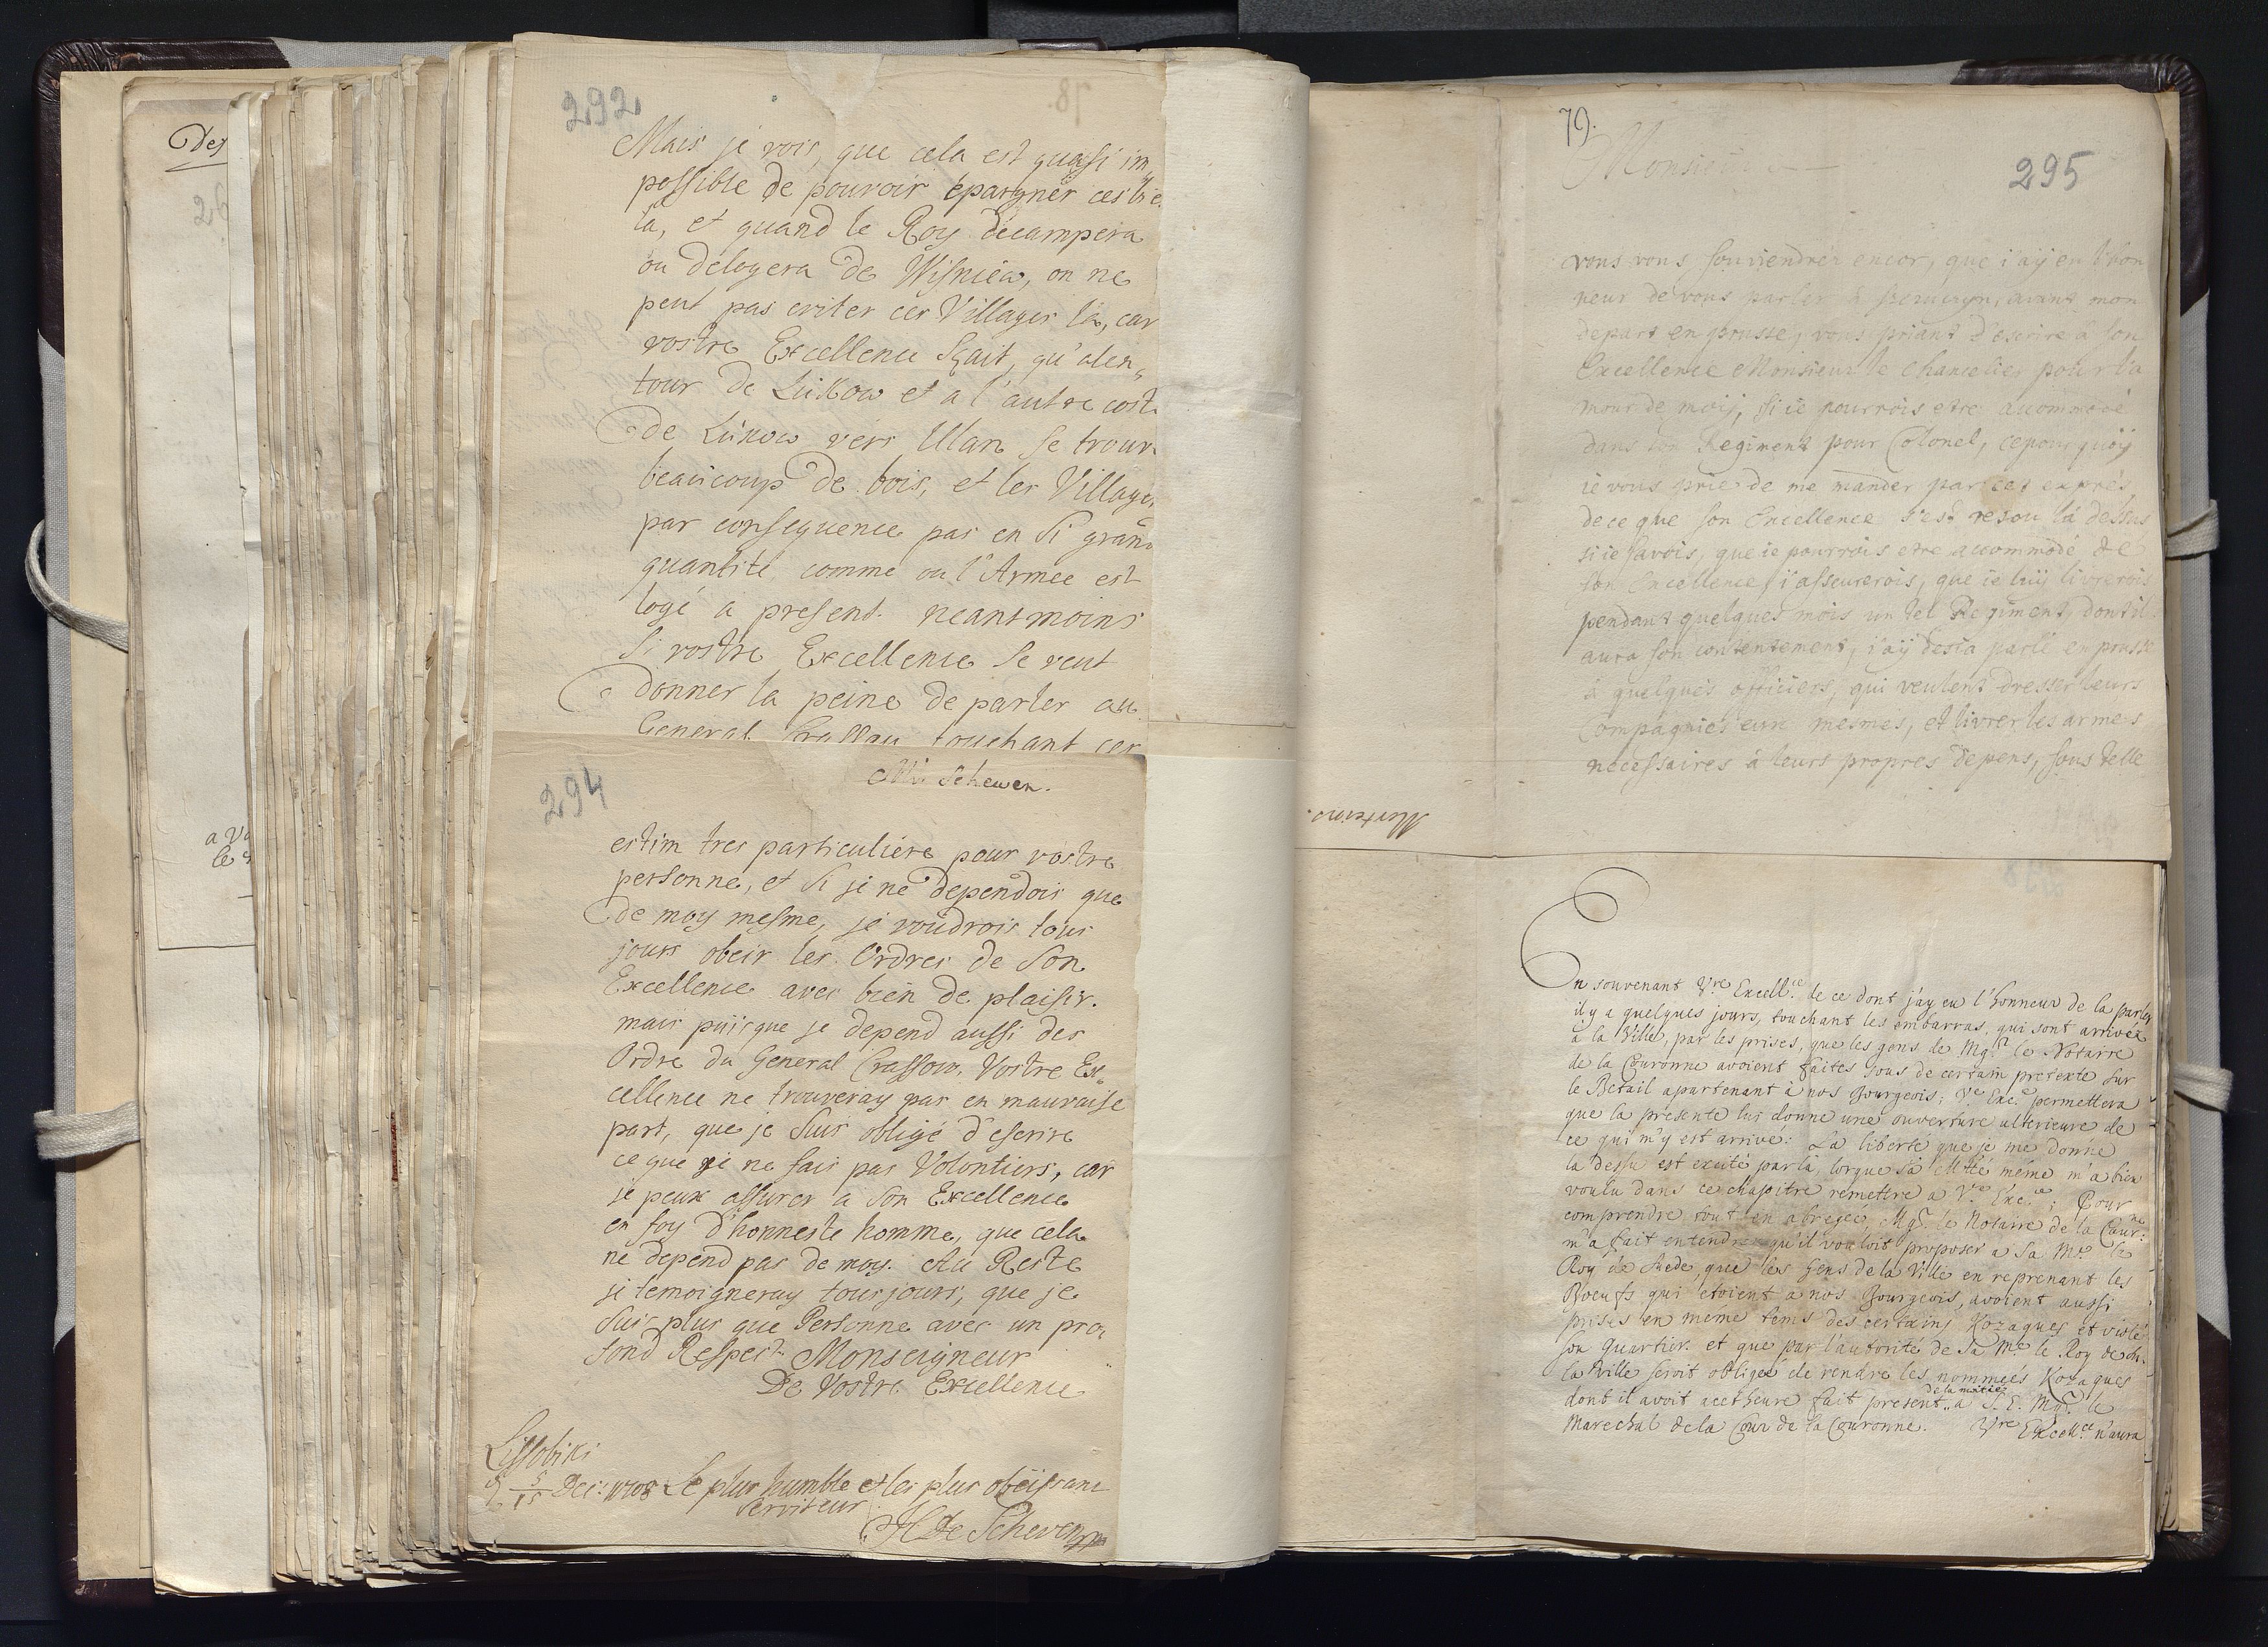 Des
26
a Va
le
292
78.
Mais je vois, que cela est quasi im„
possible de pouvoir epargner ces
la, et quand le Roy decampera
ou delogera de Wisniew, on ne
peut pas eviter ces Villages la, car
vostre Excellence Sçait, qu'alen„
tour de Lukow et a l'autre cost
de Lukow vers Ulan se trouv
beaucoup de bois, et les Village
par consequence pas en si grand
quantité, comme ou l'Armee est
logé a present. neantmoins
Si vostre Excellence se veut
donner la peine de parler au
General Crassau touchant ces
294
Mr. Schewen.
estim tres particuliere pour vostre
personne, et si je ne dependois que
de moy mesme, je voudrois tous
jours obeir les Ordres de Son
Excellence avec bien de plaisir.
mais puisque je depend aussi des
Ordre du General Crassow, Vostre Ex„
cellence ne trouveray pas en mauvaise
part, que je suis obligé d'escrire
ce que je ne fais pas Volontiers, car
je peux assurer a Son Excellence
en foy d'honneste homme, que cela
ne depend pas de moy. Au Reste
je temoigneray tousjours, que je
suis plus que Personne avec un pro„
fond Respect Monseigneur
De Vostre Excellence
Lissobiki
5/15 Dec: 1708 Le plus humble et les plus obeissant
serviteur
H De Scheven
79.
295
Monsieur
vous vous souviendrés encor, que i'aÿ eu l'hon
neur de vous parler à avant mon
depart en prusse, vous priant d'escrire à son
Excellence Monsieur le Chancelier pour la
mour de moij, si ie pourrois etre accommodé
dans son Regiment pour Colonel, cepourquoÿ
ie vous prie de me mander par cet exprés,
de ce que son Excellence s'est resou là dessus
si ie savois, que ie pourrois etre accommodé de
son Excellence, i'asseurerois, que ie luÿ livrerois
pendant quelques mois un tel Regiment, dont il
aura son contentement, i'aÿ desia parlé en prusse
à quelques officiers, qui veulent dresser leurs
Compagnies eux mesmes, et livrer les armes
necessaires à leurs propres depens, sous telle
En souvenant Vre Excellce de ce dont j'ay eu l'honneur de la parler
il y a quelques jours, touchant les embarras, qui sont arrivée
a la Ville, par les prises, que les gens de Mgr. le Notaire
de la Couronne avoient faites sous de certain pretexte sur
le Betail apartenant à nos Bourgeois; Ve. Exce. permettera
que la presente lui donne une ouverture ulterieure de
ce qui m'y est arrivé: La liberté que je me donne
la dessu est excité par là, lorque sa Mtté méme m'a bien
voulu dans ce chapitre remettre a Vre. Exc.ce; Pour
comprendre tout en abregeé, Mgr. le Notaire de la Cour:ne
m'a fait entendre qu'il vouloit proposer a Sa Mté le
Roy de Suede que les gens de la Ville en reprenant les
Boeufs qui étoient à nos Bourgeois, avoient aussi
prises en meme tems des certains Kozaques et visité
son Quartier et que par l'autorité de Sa Mté le Roy de
la Ville seroit obligeé de rendre les nommeés Kozaques
dont il avoit acetheure fait present de la moitie a S. E. Mgr. le
Marechal de la Cour de la Couronne. Vre Excellce n'aura